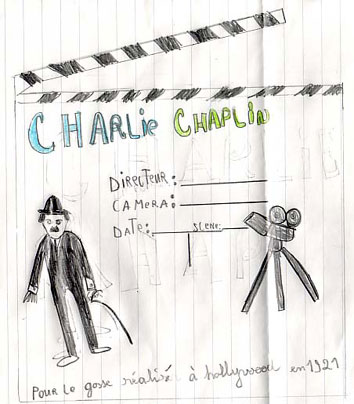 CHARLIE CHAPLIN
DIRECTEUR:
CAMERA:
DATE: SCENE:
Pour le gosse réalisé à hollywood en 1921